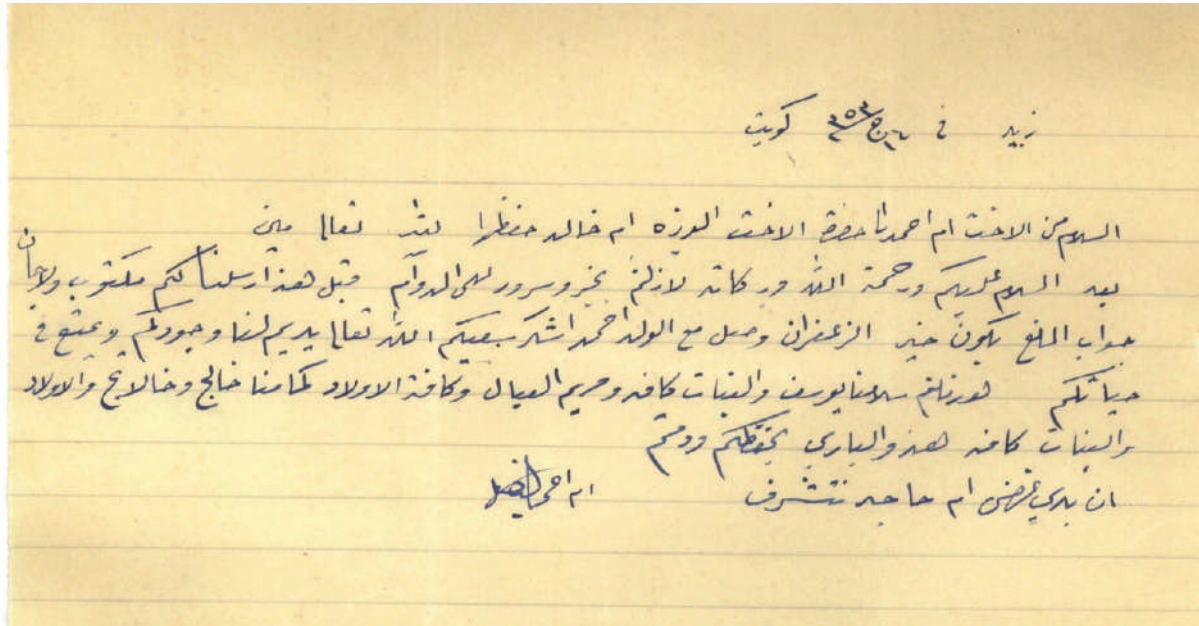 زبير في كويت
السلام من الاخت ام احمد الى حضرة الاخت العزيزه ام خالد حفظها الله تعالا
بعد السلام عليكم ورحمة الله وبركاته لازلتم بخير وسرور على الدوام قبل هذا ارسلنا لكم مكتوب ولاجان
جواب المانع يكون خير الزعفران وصل مع الولد احمد اشكر سعيكم الله تعالا يديم لنا وجودكم ويمتع في
حياتكم هذا بلغم سلامنا يوسف والبنات كافه ومريم العيال وكافة الاولاد كما منا والاولاد
والبنات كافه هذا والباري يحفظكم ودمتم
ان بدى غرض ام حاجه نتشرف ام احمد